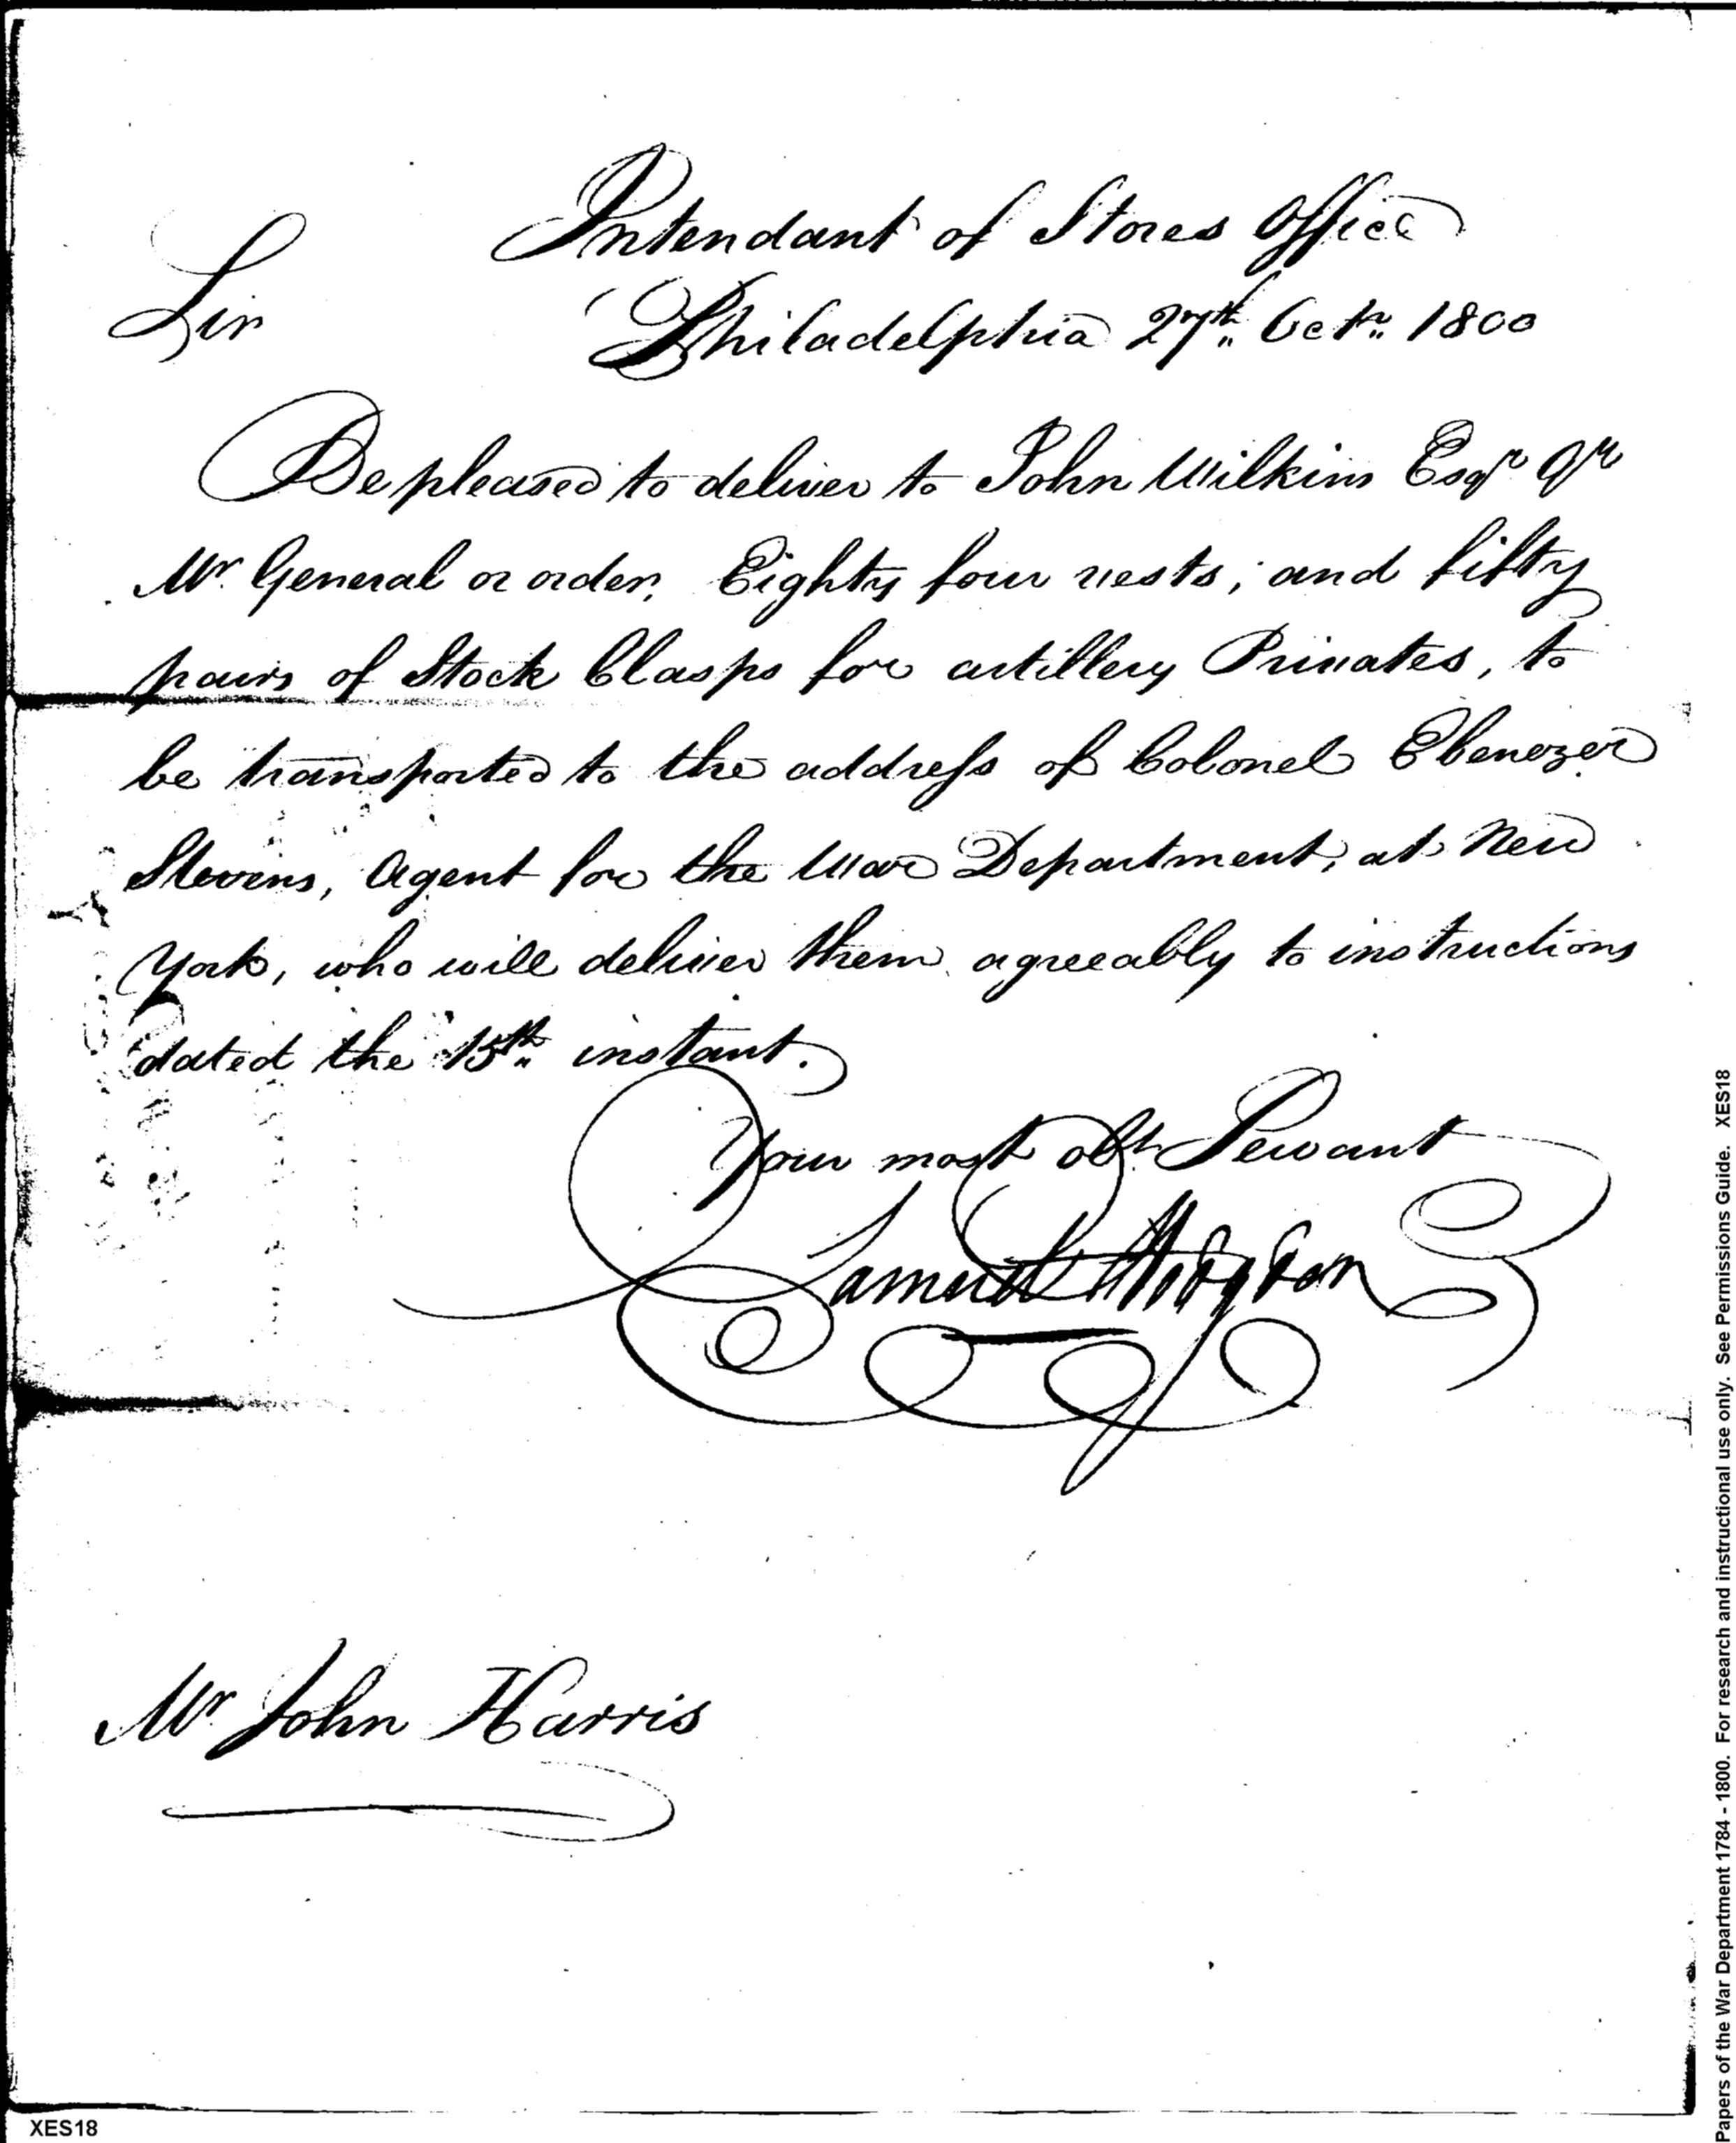 Intendant of Stores Office
Sir
Philadelphia 27th Octr 1800
Be pleased to deliver to John Wilkins Esqr Qr
Mr General or order, Eighty four vests; and fifty
pairs of Stock Clasps for artillery Privates, to
be transported to the address of Colonel Ebenezer
Stevens, Agent for the War Department, at New
York, who will deliver them agreeably to instructions
dated the 15th instant.
Your most obt Servant
Samuel Hodgdon
Mr John Harris
XES18
Papers of the War Department 1784 - 1800. For research and instructional use only. See Permissions Guide. XES18